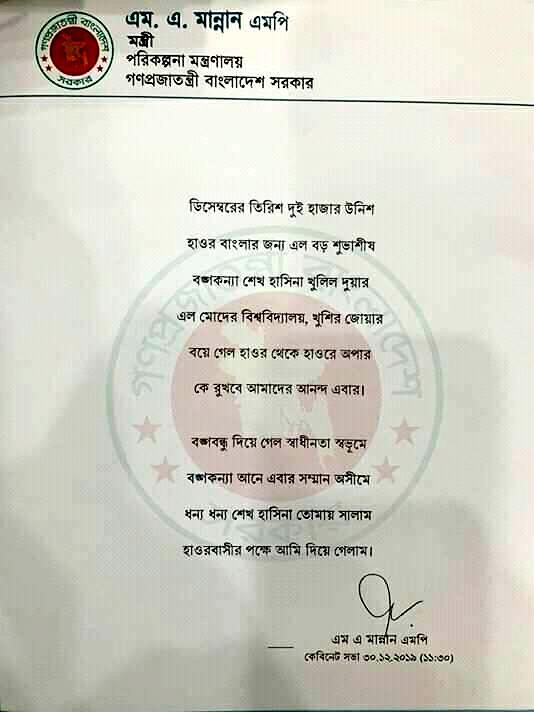 এম. এ. মান্নান এমপি
মন্ত্রী
পরিকল্পনা মন্ত্রণালয়
গণপ্রজাতন্ত্রী বাংলাদেশ সরকার
গণপ্রজাতন্ত্রী বাংলাদেশ
সরকার
ডিসেম্বরের তিরিশ দুই হাজার উনিশ
হাওর বাংলার জন্য এল বড় শুভাশীষ
বঙ্গকন্যা শেখ হাসিনা খুলিল দুয়ার
এল মোদের বিশ্ববিদ্যালয়, খুশির জোয়ার
বয়ে গেল হাওর থেকে হাওরে অপার
কে রুখবে আমাদের আনন্দ এবার।
বঙ্গবন্ধু দিয়ে গেল স্বাধীনতা স্বভূমে
বঙ্গকন্যা আনে এবার সম্মান অসীমে
ধন্য ধন্য শেখ হাসিনা তোমায় সালাম
হাওরবাসীর পক্ষে আমি দিয়ে গেলাম।
গণপ্রজাতন্ত্রী বাংলাদেশ
সরকার
এম এ মান্নান এমপি
কেবিনেট সভা ৩০.১২.২০১৯ (১১:৩০)